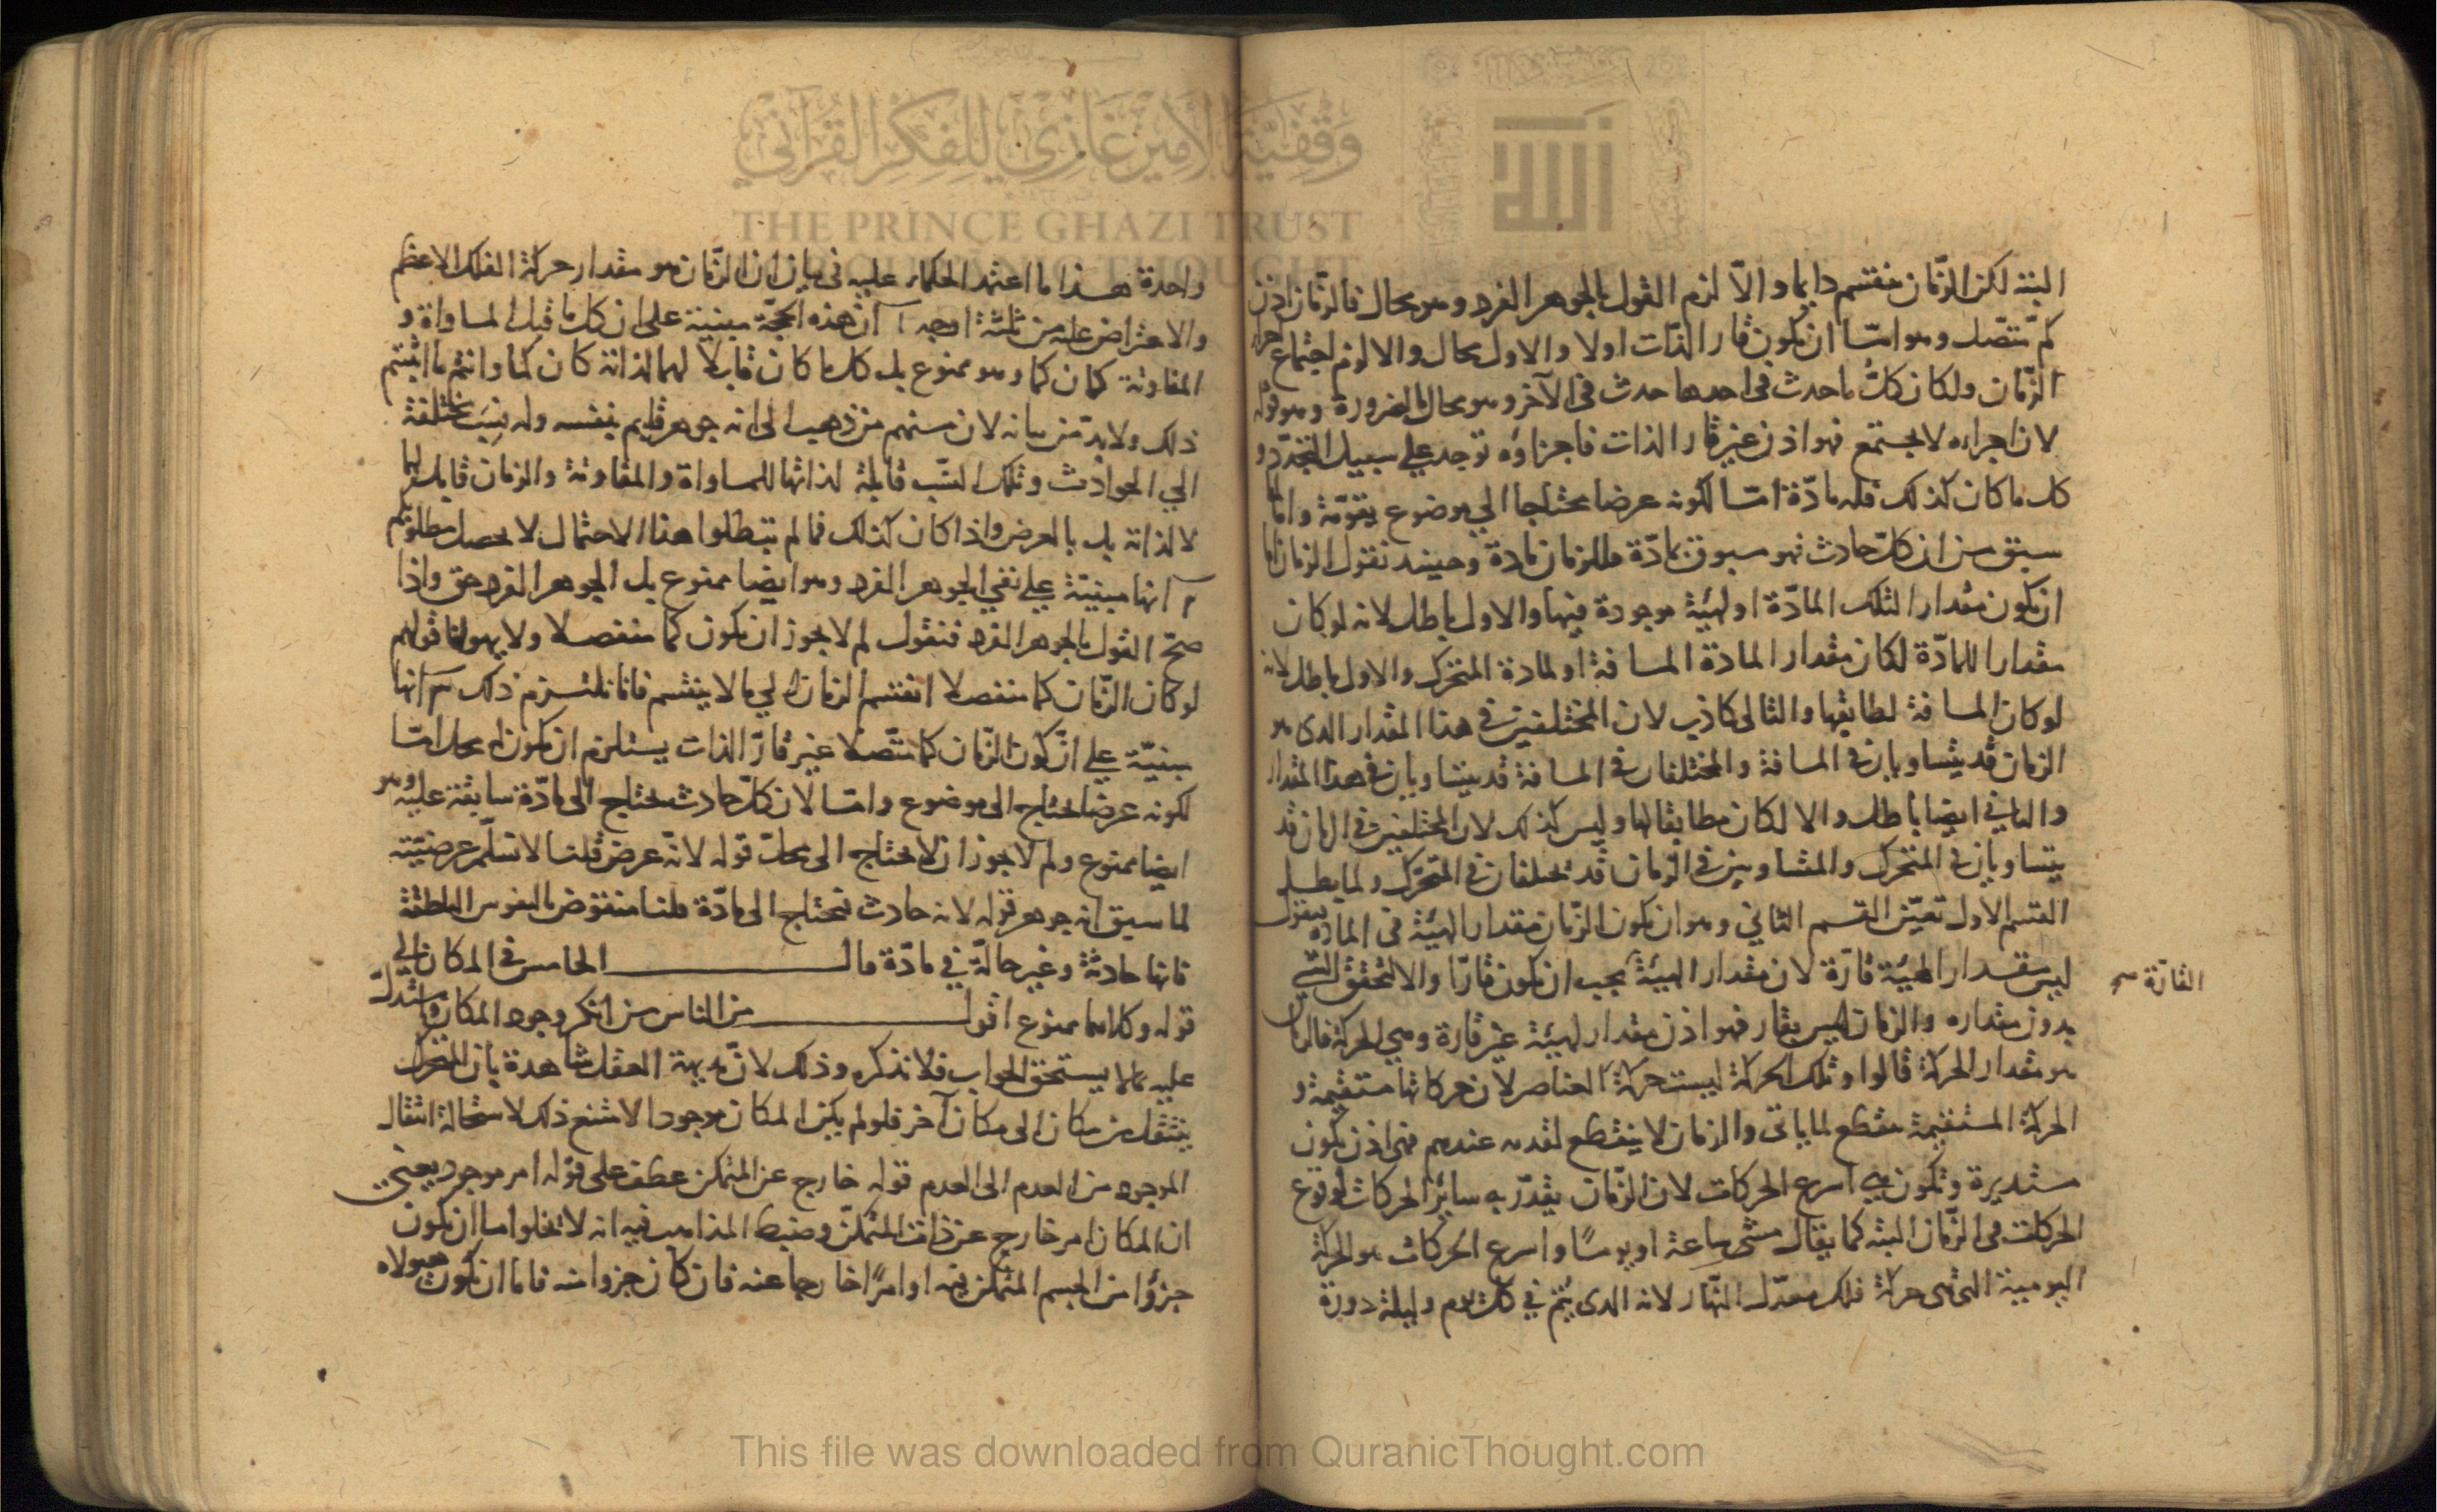 البتة لكن الزّمان منقسم دايما والاّ لزم القول بالجوهر الفرد وهو محال فالزّمان اذن
كمّ متّصل وهو امّا ان يكون قار الذّات اولا والاول محال والا لزم اجتماع اجزاء
الزّمان ولكان كلّ ما حدث في احدها حدث في الآخر وهو محال بالضرورة وهو قوله
لان اجزاءه لا يجتمع فهو اذن غير قار الذات فاجزاؤه توجد علي سبيل التجدّد و
كل ما كان كذلك فله مادّة امّا لكونه عرضا محتاجا الي موضوع يقوّمه واما لما
سبق من ان كلّ حادث فهو مسبوق بمادّة فللزمان مادة وحينئذ نقول الزمان اما
ان يكون مقدارا لتلك المادّة او لهيئة موجودة فيها والاول باطل لانه لو كان
مقدارا للمادّة لكان مقدار المادة المسافة او لمادة المتحرك والاول باطل لانه
لو كان المسافة لطابقها والتالي كاذب لان المختلفين في هذا المقدار الذي هو
الزمان قد يتساويان في المسافة والمختلفان في المسافة قد يتساويان في هذا المقدار
والثاني ايضا باطل والا لكان مطابقا لها وليس كذلك لان المختلفين في الزمان قد
يتساويان في المتحرك والمتساويين في الزّمان قد يختلفان في المتحرّك ولما بطل
القسم الاول تعيّن القسم الثاني وهو ان يكون الزّمان مقدار الهيئة في المادة فيقول
ليس مقدار الهيئة قارّة لان مقدار الهيئة يجب ان يكون قارّا والا لتحقق الشي
القارّة صح
بدون مقداره والزمان ليس بقار فهو اذن مقدار لهيئة غير قارة وهي الحركة فالزمان
هو مقدار الحركة قالوا وتلك الحركة ليست حركة العناصر لان حركاتها مستقيمة و
الحركة المستقيمة منقطع لما ياتي والزمان لا ينقطع لقدمه عندهم فهي اذن يكون
مستديرة وتكون هي اسرع الحركات لان الزّمان يقدّر به سائر الحركات لوقوع
الحركات في الزّمان البتة كما يقال مشى ساعة او يومًا واسرع الحركات هو الحركة
اليومية التي هي حركة فلك معدّل النّهار لانه الذي يتمّ في كل يوم وليلة دورة
واحدة هذا ما اعتمد الحكماء عليه في بيان ان الزّمان هو مقدار حركة الفلك الاعظم
والاعتراض عليه من ثلثة اوجه ا ان هذه الحجّة مبنية على ان كل ما قبل المساواة و
المفاوتة كان كما وهو ممنوع بل كل ما كان قابلا لهما لذاته كان كما وانتم ما اثبتم
ذلك ولا بدّ من بيانه لان منهم من ذهب الى انه جوهر قايم بنفسه وله نِسَب مختلفة
الي الحوادث وتلك النسب قابلة لذاتها للمساواة والمفاوتة والزمان قابل لهما
لا لذاته بل بالعرض واذا كان كذلك فما لم تبطلوا هذا الاحتمال لا يحصل مطلوبكم
٢ انها مبنيّة علي نفي الجوهر الفرد وهو ايضا ممنوع بل الجوهر الفرد حق واذا
صحّ القول بالجوهر الفرد فنقول لم لا يجوز ان يكون كما منفصلا ولا يهولنا قولهم
لو كان الزّمان كما منفصلا انقسم الزمان الي ما لا ينقسم فانا نلتزم ذلك ٣ انها
مبنيّة علي انّ كون الزّمان كما متّصلا غير قارّ الذات يستلزم ان يكون له محل امّا
لكونه عرضا محتاج الى موضوع وامّا لان كلّ حادث محتاج الى مادّة سابقة عليه وهو
ايضا ممنوع ولم لا يجوز ان لا يحتاج الى محلّ قوله لانّه عرض قلنا لا نسلّم عرضيّته
لما سبق انه جوهر قوله لانه حادث فيحتاج الى مادّة قلنا منقوض بالنفوس الناطقة
فانها حادثة وغير حالّة في مادّة قال الخامس في المكان الي
قوله وكلاهما ممنوع اقول من الناس من انكر وجود المكان واستدلّ
عليه بما لا يستحق الجواب فلا نذكره وذلك لانّ بديهة العقل شاهدة بان المتحرك
ينتقل من مكان الى مكان آخر فلو لم يكن المكان موجودا لامتنع ذلك لاستحالة انتقال
الموجود من العدم الى العدم قوله خارج عن المتمكن عطف على قوله امر موجود يعني
ان المكان امر خارج عن ذات المتمكّن وضبط المذاهب فيه انه لا يخلوا اما ان يكون
جزؤا من الجسم المتمكن فيه او امرًا خارجا عنه فان كان جزوا منه فاما ان يكون هيولاه